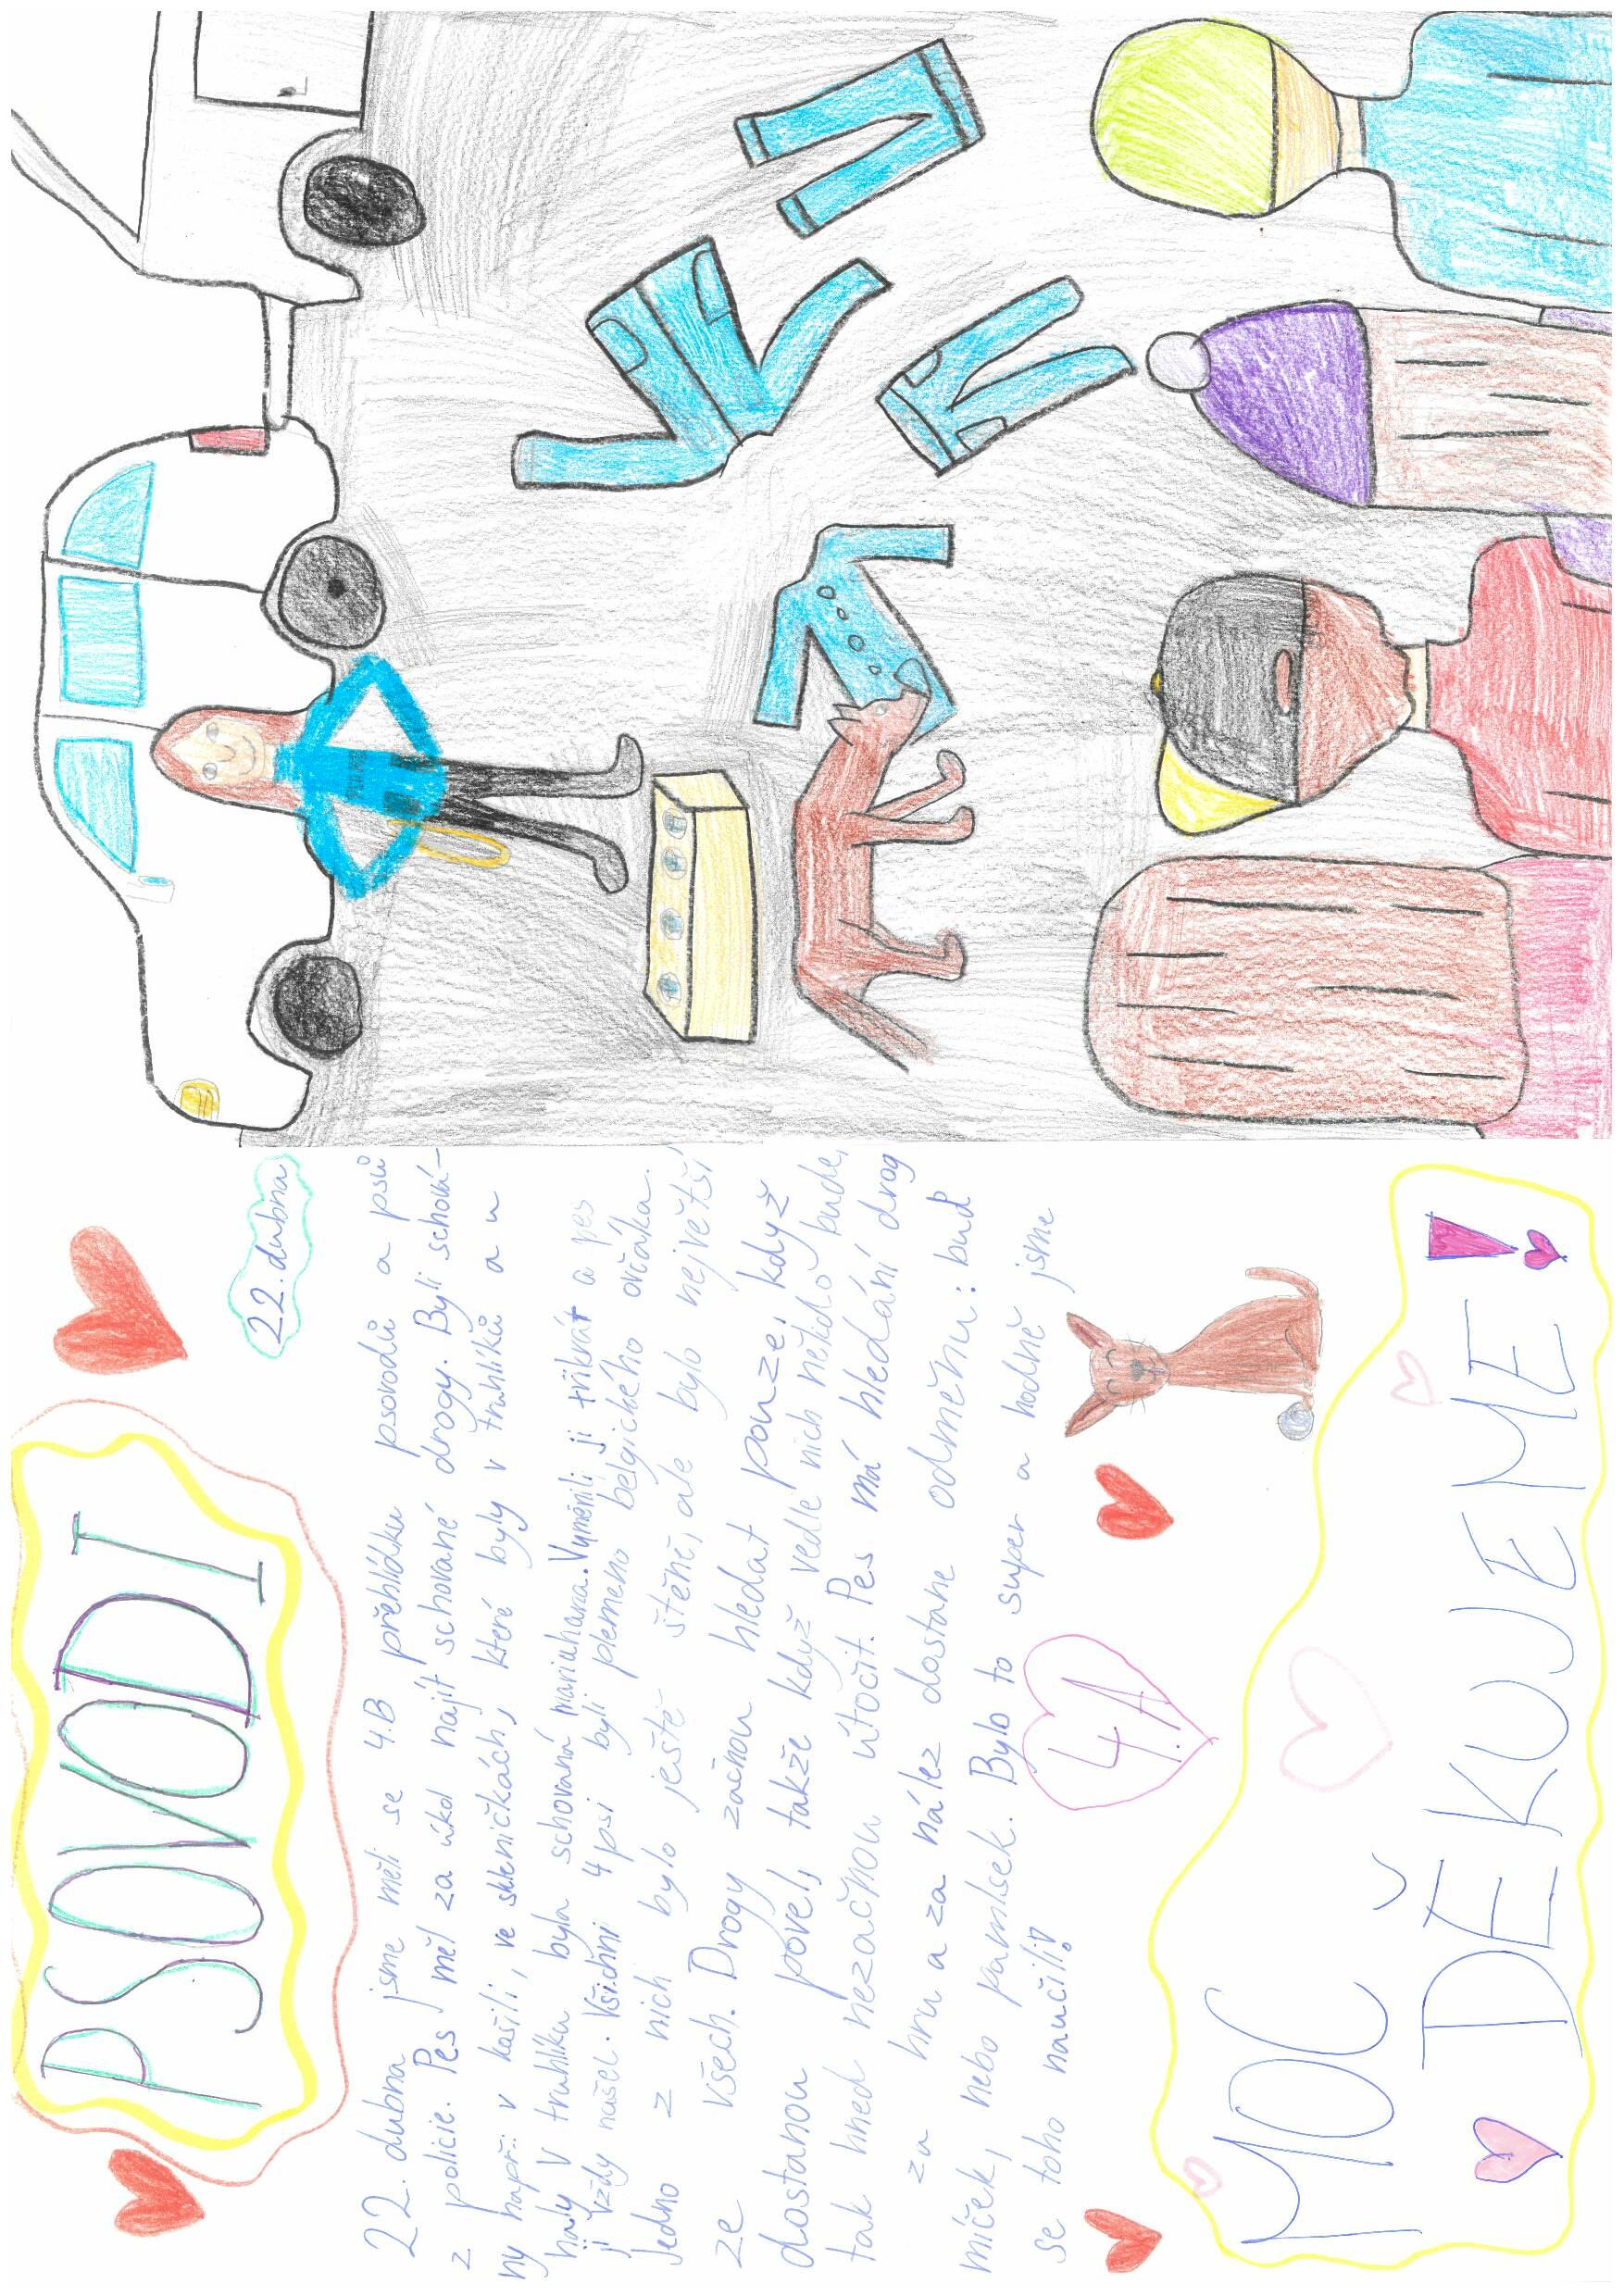 PSOVODI
22. dubna
22. dubna jsme měli se 4.B přehlídku psovodů a psů
z policie. Pes měl za úkol najít schované drogy. Byli schová-
ny např. v košili, ve skleničkách, které byly v truhlíků a u
haly V truhlíku byla schovaná mariuhana. Vyměnili ji třikrát a pes
ji vždy našel. Všichni 4 psi byli plemeno belgického ovčáka.
Jedno z nich bylo ještě štěně, ale bylo nejvetší
ze všech. Drogy začnou hledat pouze, když
dostanou povel, takže když vedle nich někdo bude,
tak hned nezačnou útočit. Pes má hledání drog
za hru a za nález dostane odměnu: buď
míček, nebo pamlsek. Bylo to super a hodně jsme
se toho naučili!
4.A
MOC
DĚKUJEME!